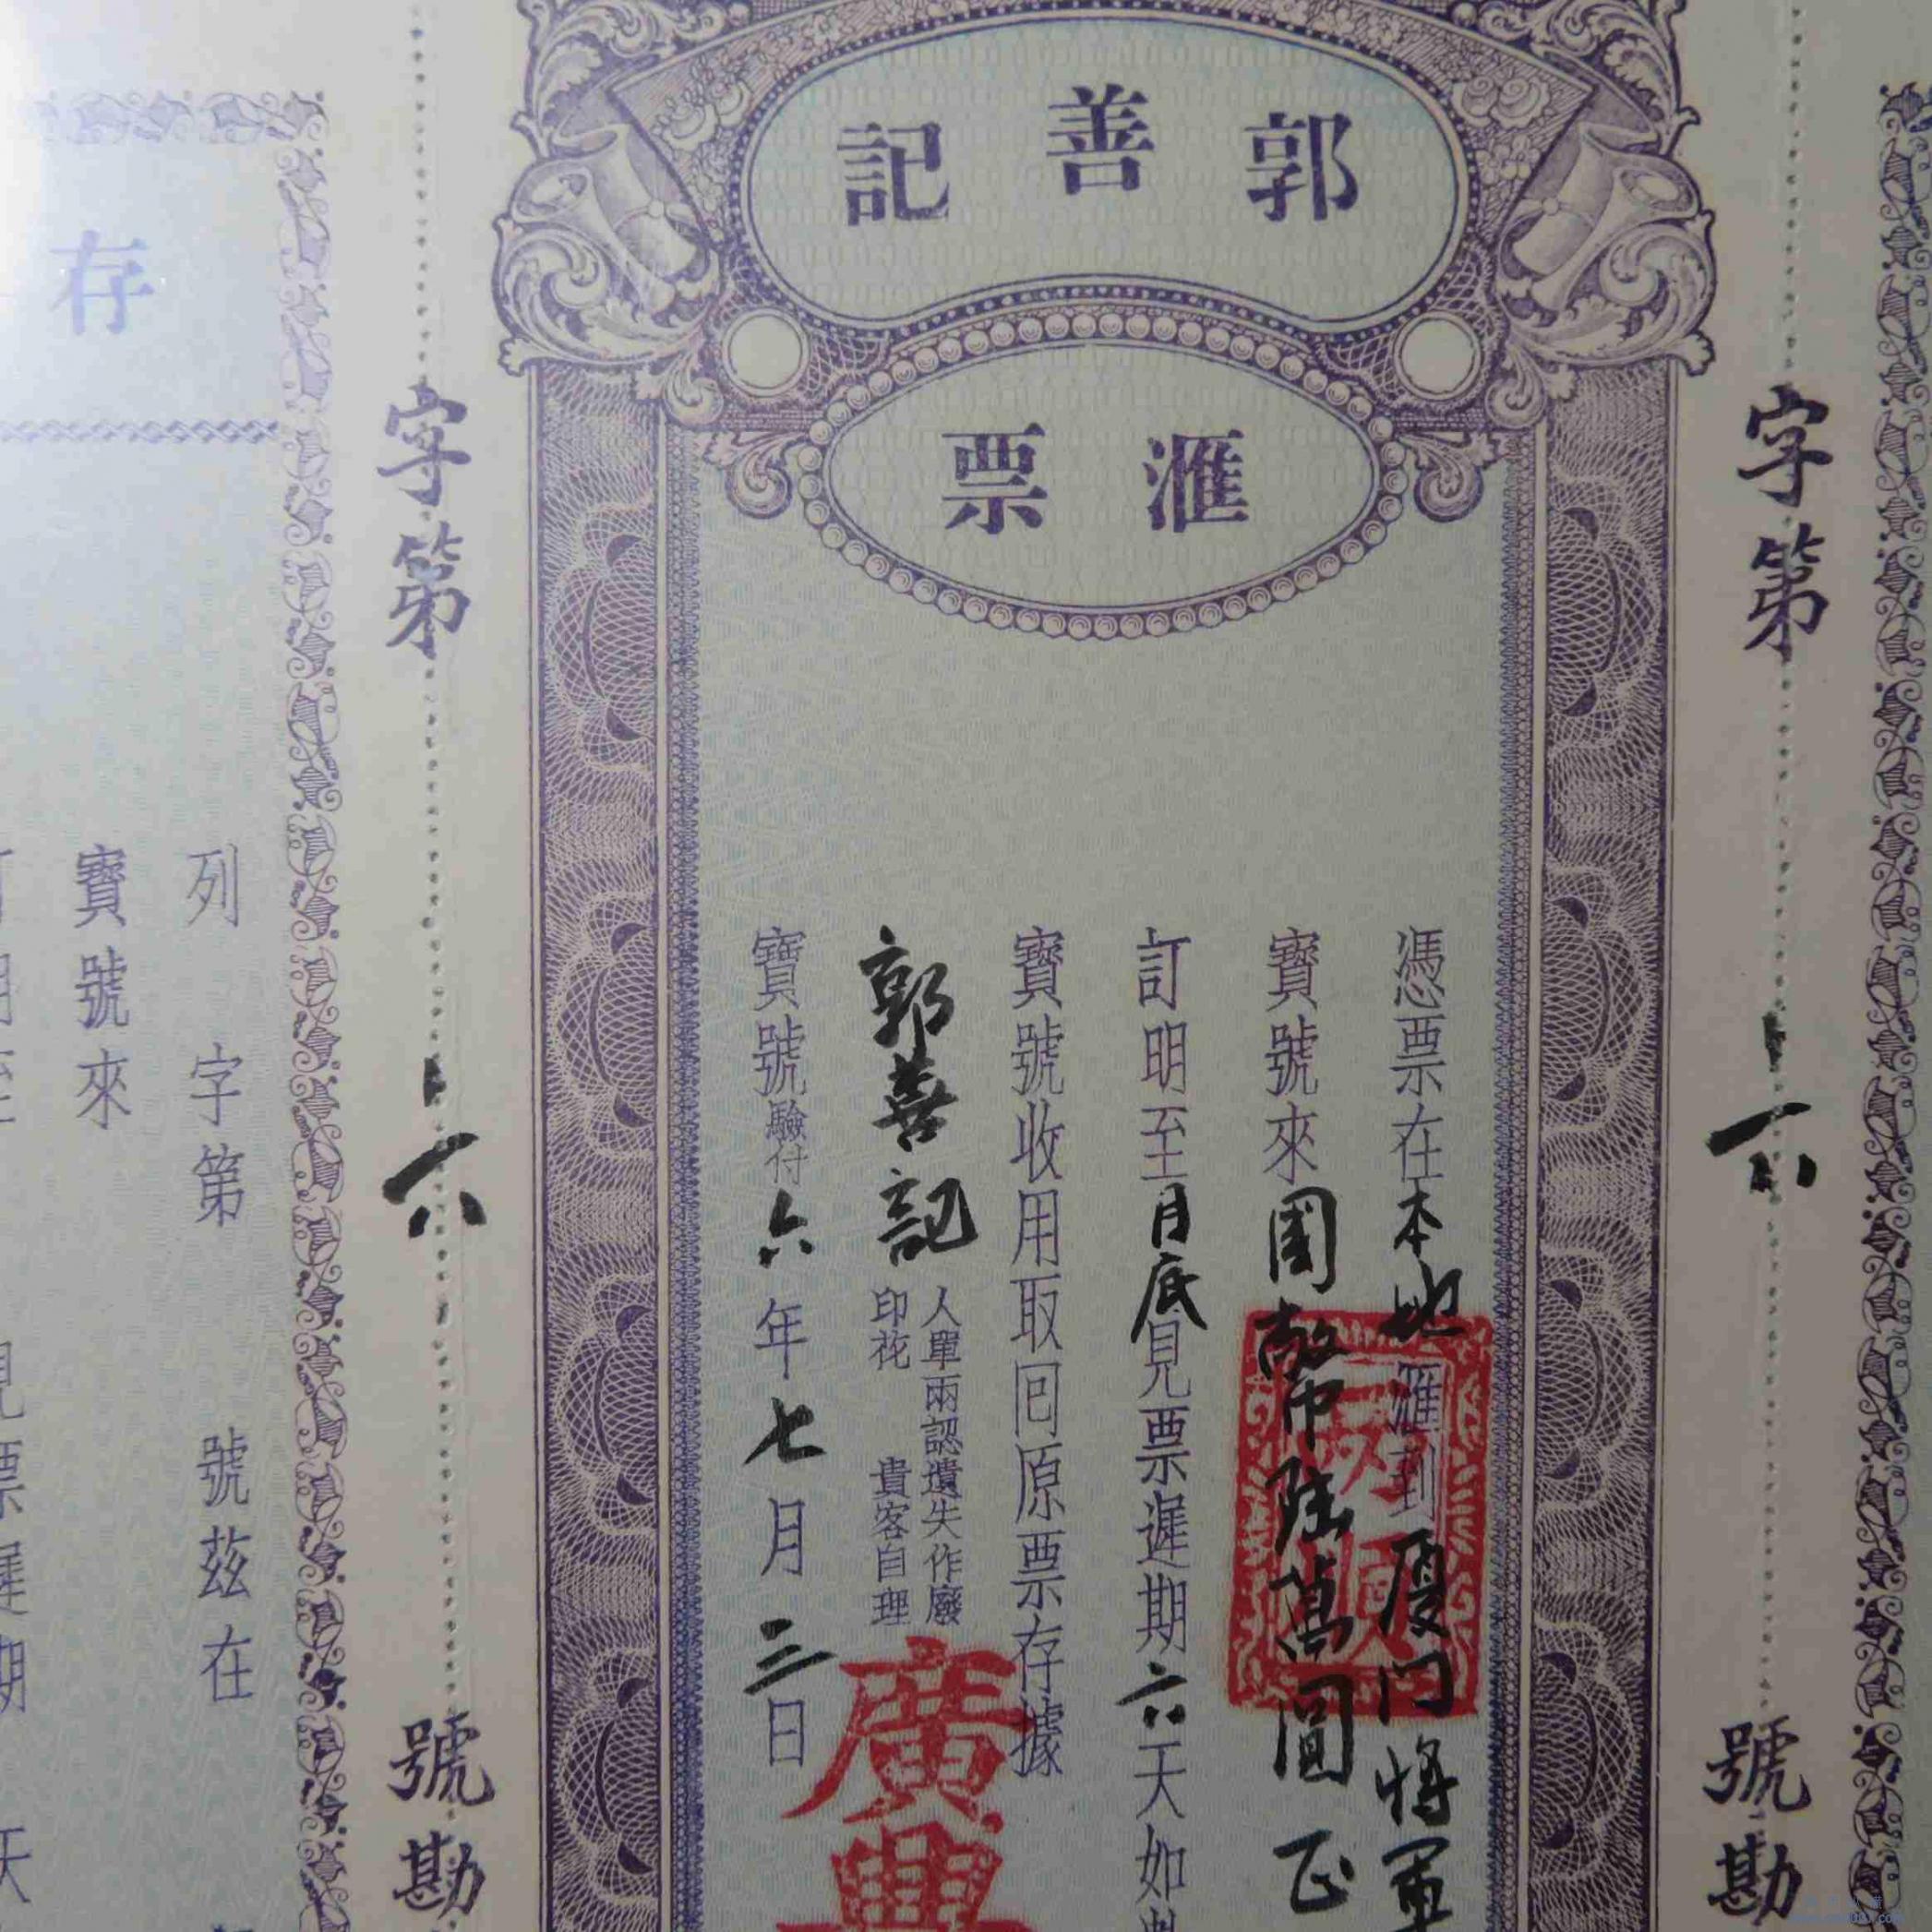 郭善記
滙票
字第
六
號勘
憑票在本地滙到厦門將軍
寶號來國幣陸萬圓正
訂明至月底見票遲期六天如
寶號收用取回原票存據
郭善記
人單兩認遺失作廢
印花 貴客自理
寶號驗付六年七月三日
廣興
字第
六
號勘
存
列字第 號茲在
寶號來